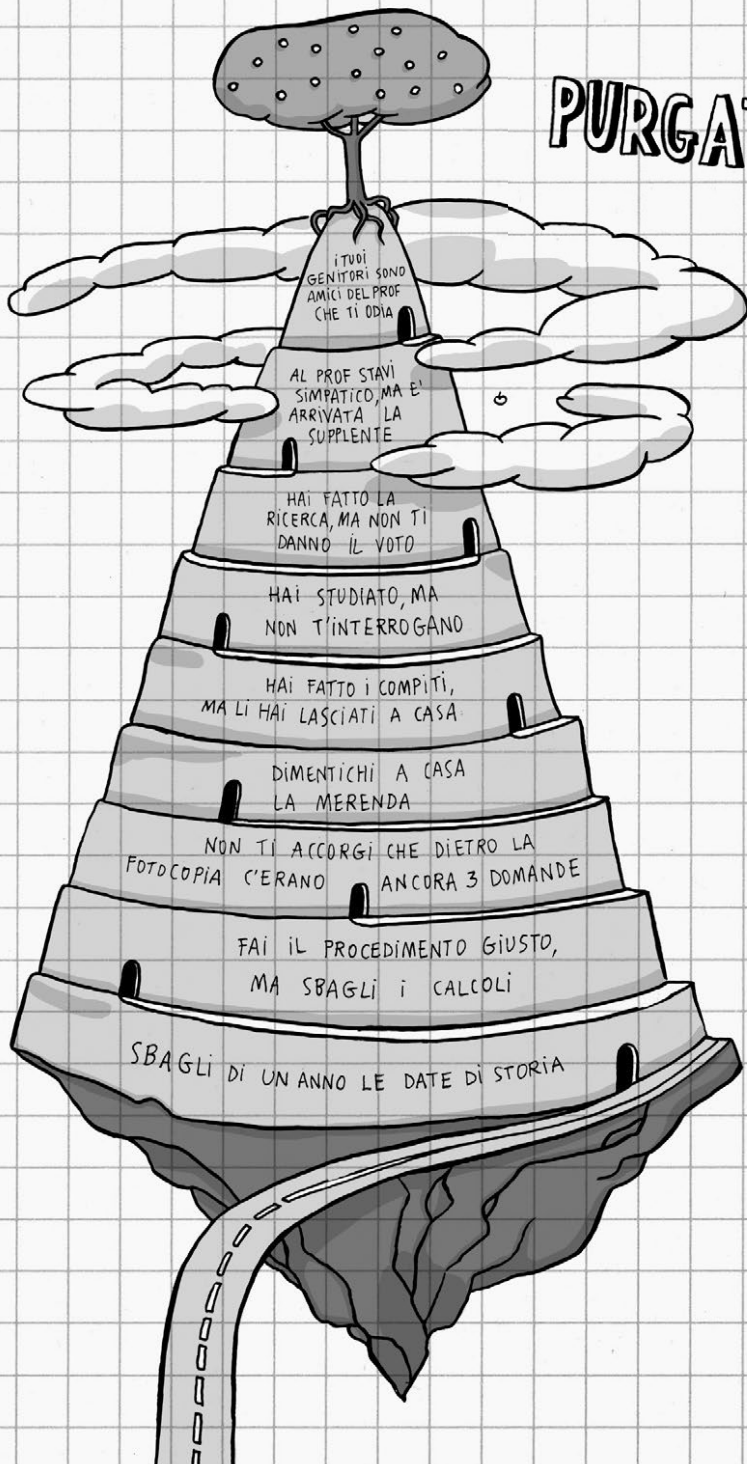 PURGA
i TUOI
GENITORI SONO
AMICI DEL PROF
CHE TI ODIA
AL PROF STAVI
SIMPATICO, MA E'
ARRIVATA LA
SUPPLENTE
HAI FATTO LA
RICERCA, MA NON TI
DANNO IL VOTO
HAI STUDIATO, MA
NON T'INTERROGANO
HAI FATTO I COMPITI,
MA LI HAI LASCIATI A CASA
DIMENTICHI A CASA
LA MERENDA
NON TI ACCORGI CHE DIETRO LA
FOTOCOPIA C'ERANO ANCORA 3 DOMANDE
FAI IL PROCEDIMENTO GIUSTO,
MA SBAGLI I CALCOLI
SBAGLI DI UN ANNO LE DATE DI STORIA